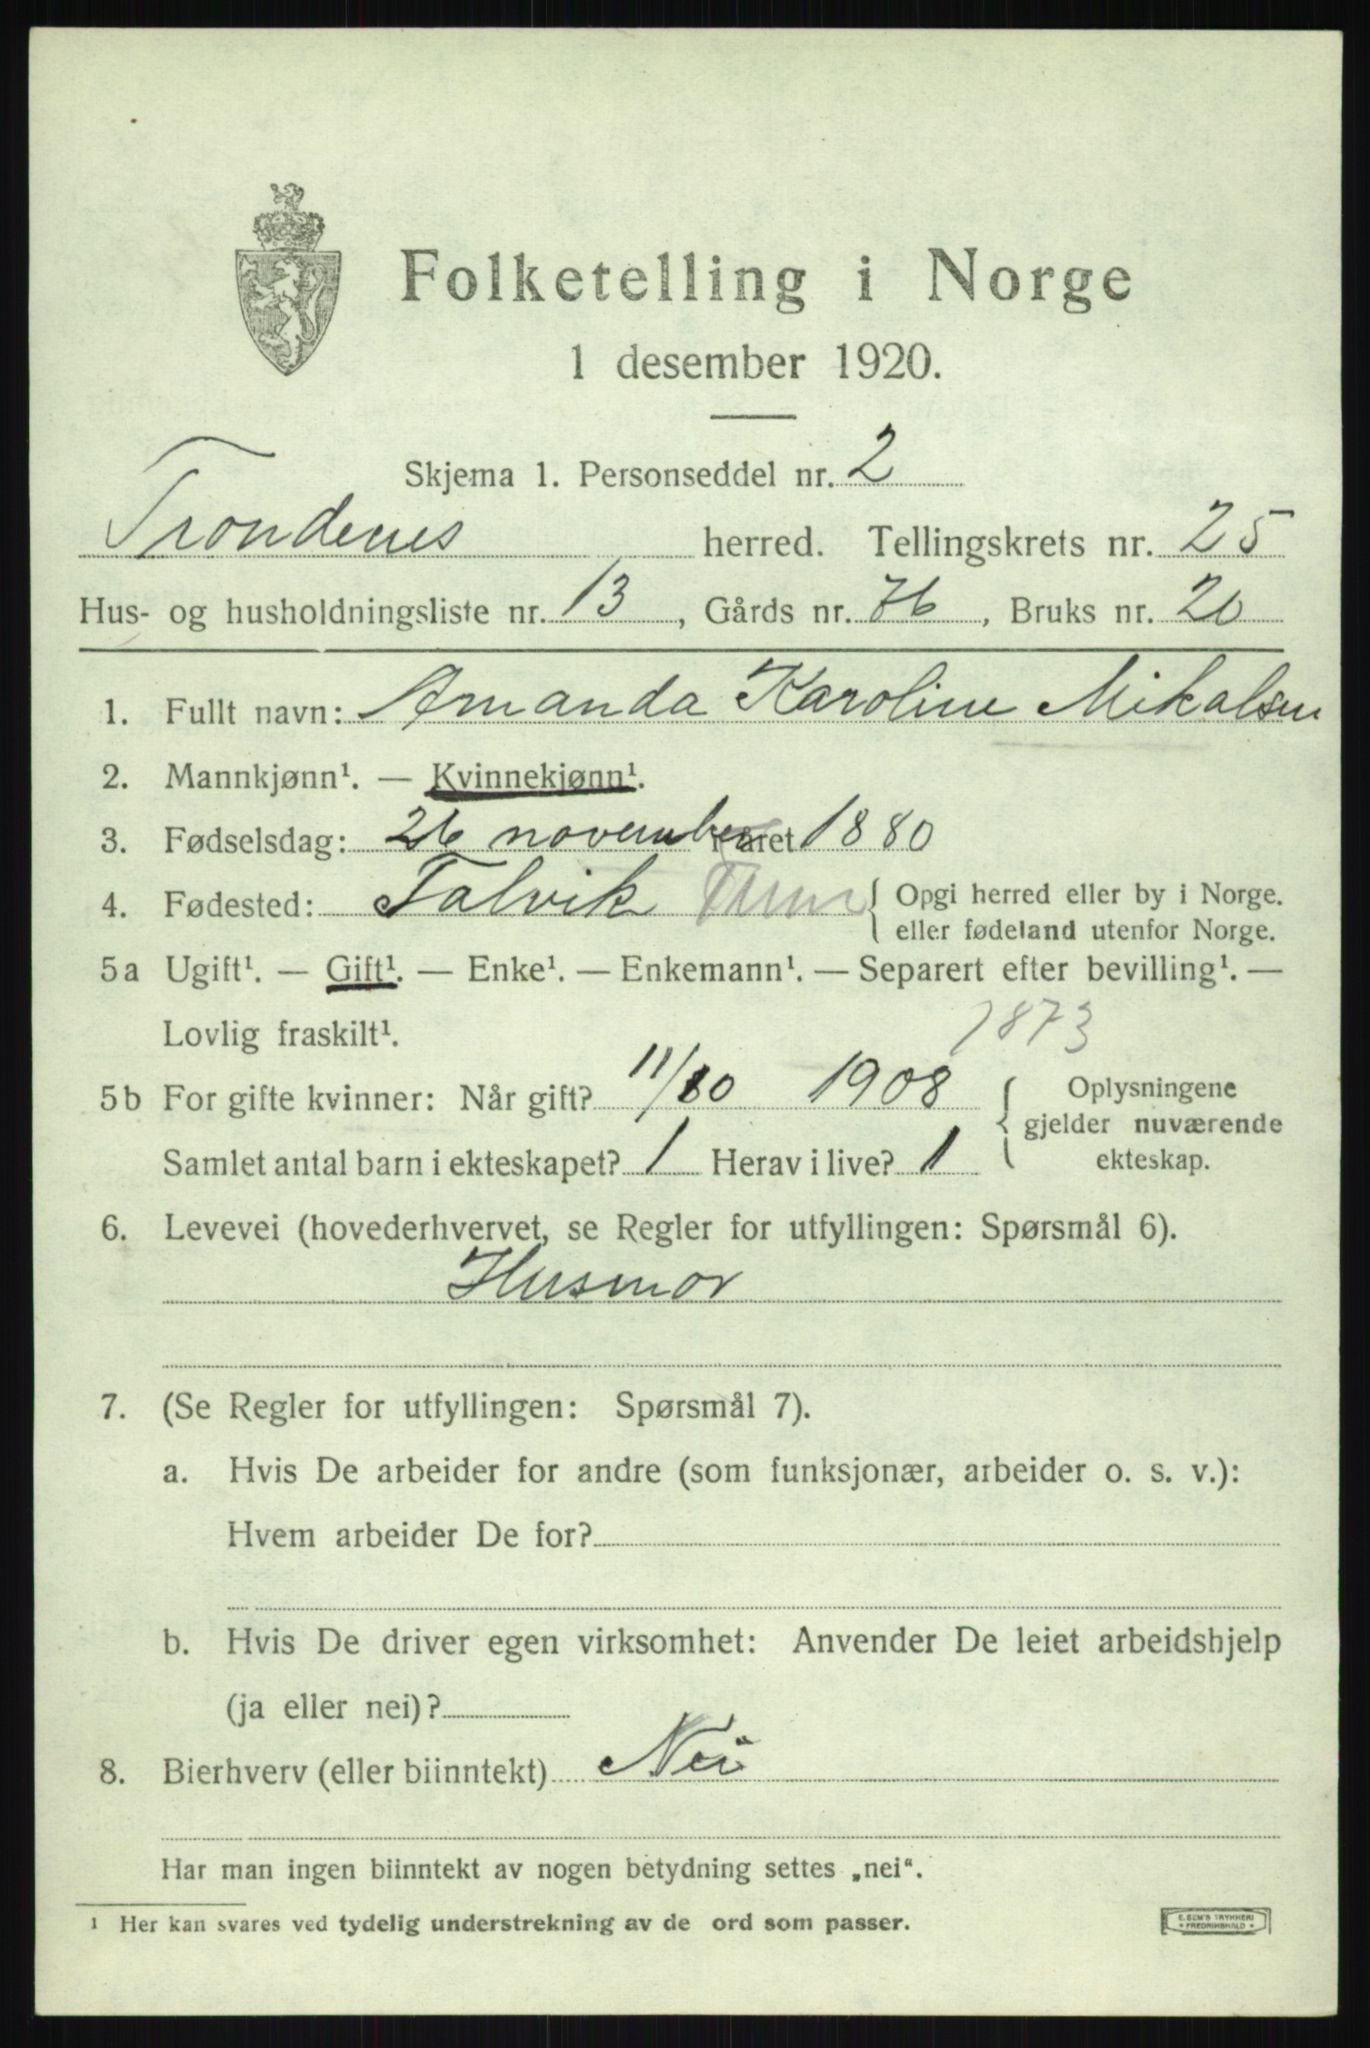 Folketelling i Norge
1 desember 1920.
Skjema 1. Personseddel nr. 2
Trondenes herred. Tellingskrets nr. 25
Hus- og husholdningsliste nr. 13, Gårds nr. 76, Bruks nr. 20
1. Fullt navn: Amanda Karoline Mikalsen
2. Mannkjønn¹. — Kvinnekjønn¹.
3. Fødselsdag: 26 november i året 1880
4. Fødested: Talvik { Opgi herred eller by i Norge.
eller fødeland utenfor Norge.
5a Ugift¹. — Gift¹. — Enke¹. — Enkemann¹. — Separert efter bevilling¹. —
Lovlig fraskilt¹. 1873
5b For gifte kvinner: Når gift? 11/10 1908 { Oplysningene
gjelder nuværende
Samlet antal barn i ekteskapet? 1 Herav i live? 1 ekteskap.
6. Levevei (hovederhvervet, se Regler for utfyllingen: Spørsmål 6).
Husmor
7. (Se Regler for utfyllingen: Spørsmål 7).
a. Hvis De arbeider for andre (som funksjonær, arbeider o. s. v.):
Hvem arbeider De for?
b. Hvis De driver egen virksomhet: Anvender De leiet arbeidshjelp
(ja eller nei)?
8. Bierhverv (eller biinntekt) Nei
Har man ingen biinntekt av nogen betydning settes „nei“.
¹ Her kan svares ved tydelig understrekning av de ord som passer.
E. SEM'S TRYKKERI
FREDRIKSHALD